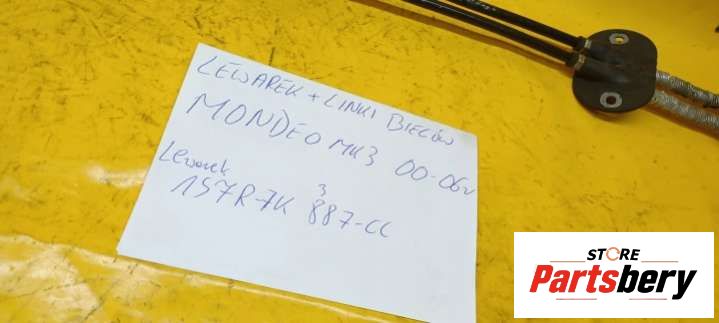 LEWAREK + LINKI BIEGÓW
MONDEO MK3 00-06r
Lewarek
3
1S7R-7K 887-CC
STORE
Partsbery